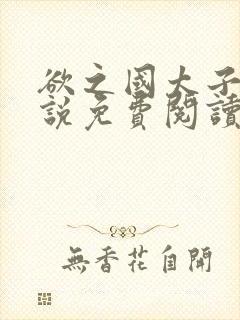 欲之國大子
說免費閱讀
無香花自開